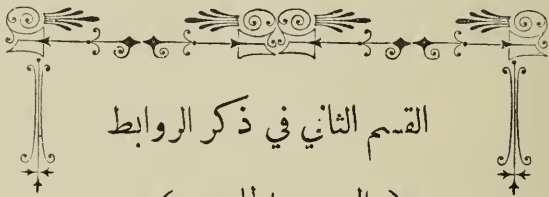 القسم الثاني في ذكر الروابط